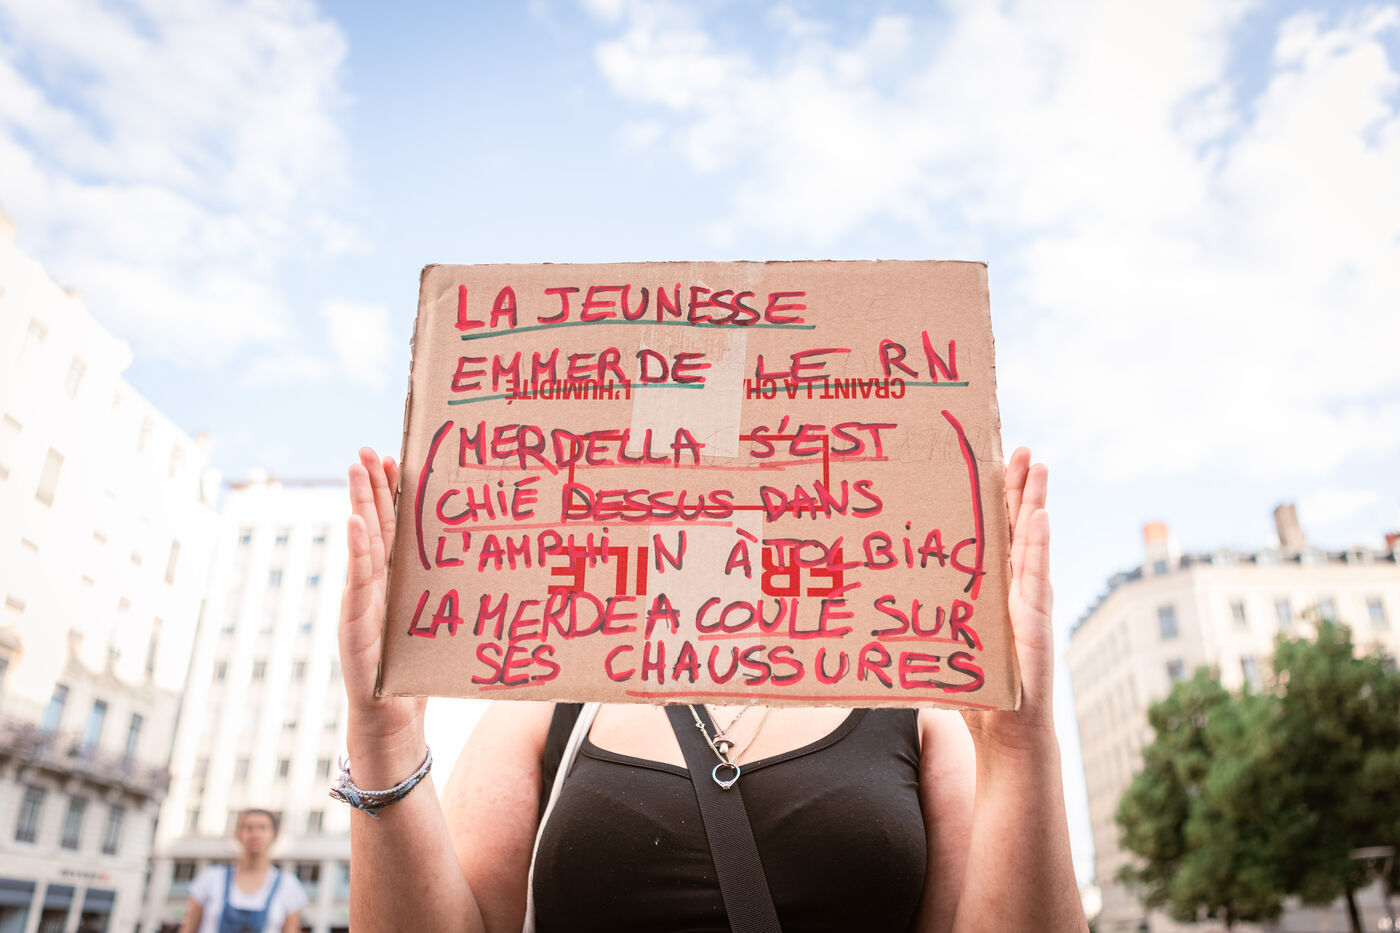 LA JEUNESSE
EMMERDE LE RN
CRAINT LA CH
L'HUMIDITÉ
(MERDELLA S'EST
CHIÉ DESSUS DANS
L'AMPHI N À TOLBIAC)
LA MERDE A COULÉ SUR
SES CHAUSSURES